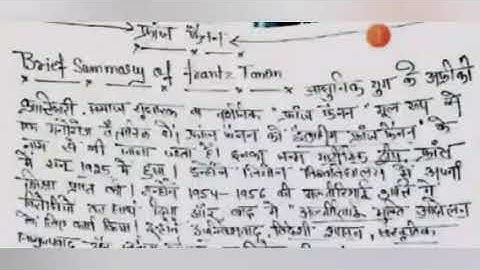 फ्रांज फैनन
Brief Summary of frantz Fanon
आधुनिक युग के अफ्रीकी
क्रांतिकारी, समाज सुधारक व दार्शनिक "फ्रांज फैनन" मूल रूप से
एक मनोवैज्ञानिक थे। फ्रांज फैनन को "इब्राहिम फ्रांज फैनन" के
नाम से भी जाना जाता है। इनका जन्म मार्टीनिक द्वीप, फ्रांस
में सन 1925 में हुआ। इन्होंने विश्वविद्यालय से अपनी
शिक्षा प्राप्त की। इन्होंने 1954-1956 की अल्जीरियाई क्रांति में
का साथ दिया और बाद में "अल्जीरियाई मुक्ति आंदोलन
के लिए कार्य किया। इन्होंने उपनिवेशवाद, विदेशी शासन,